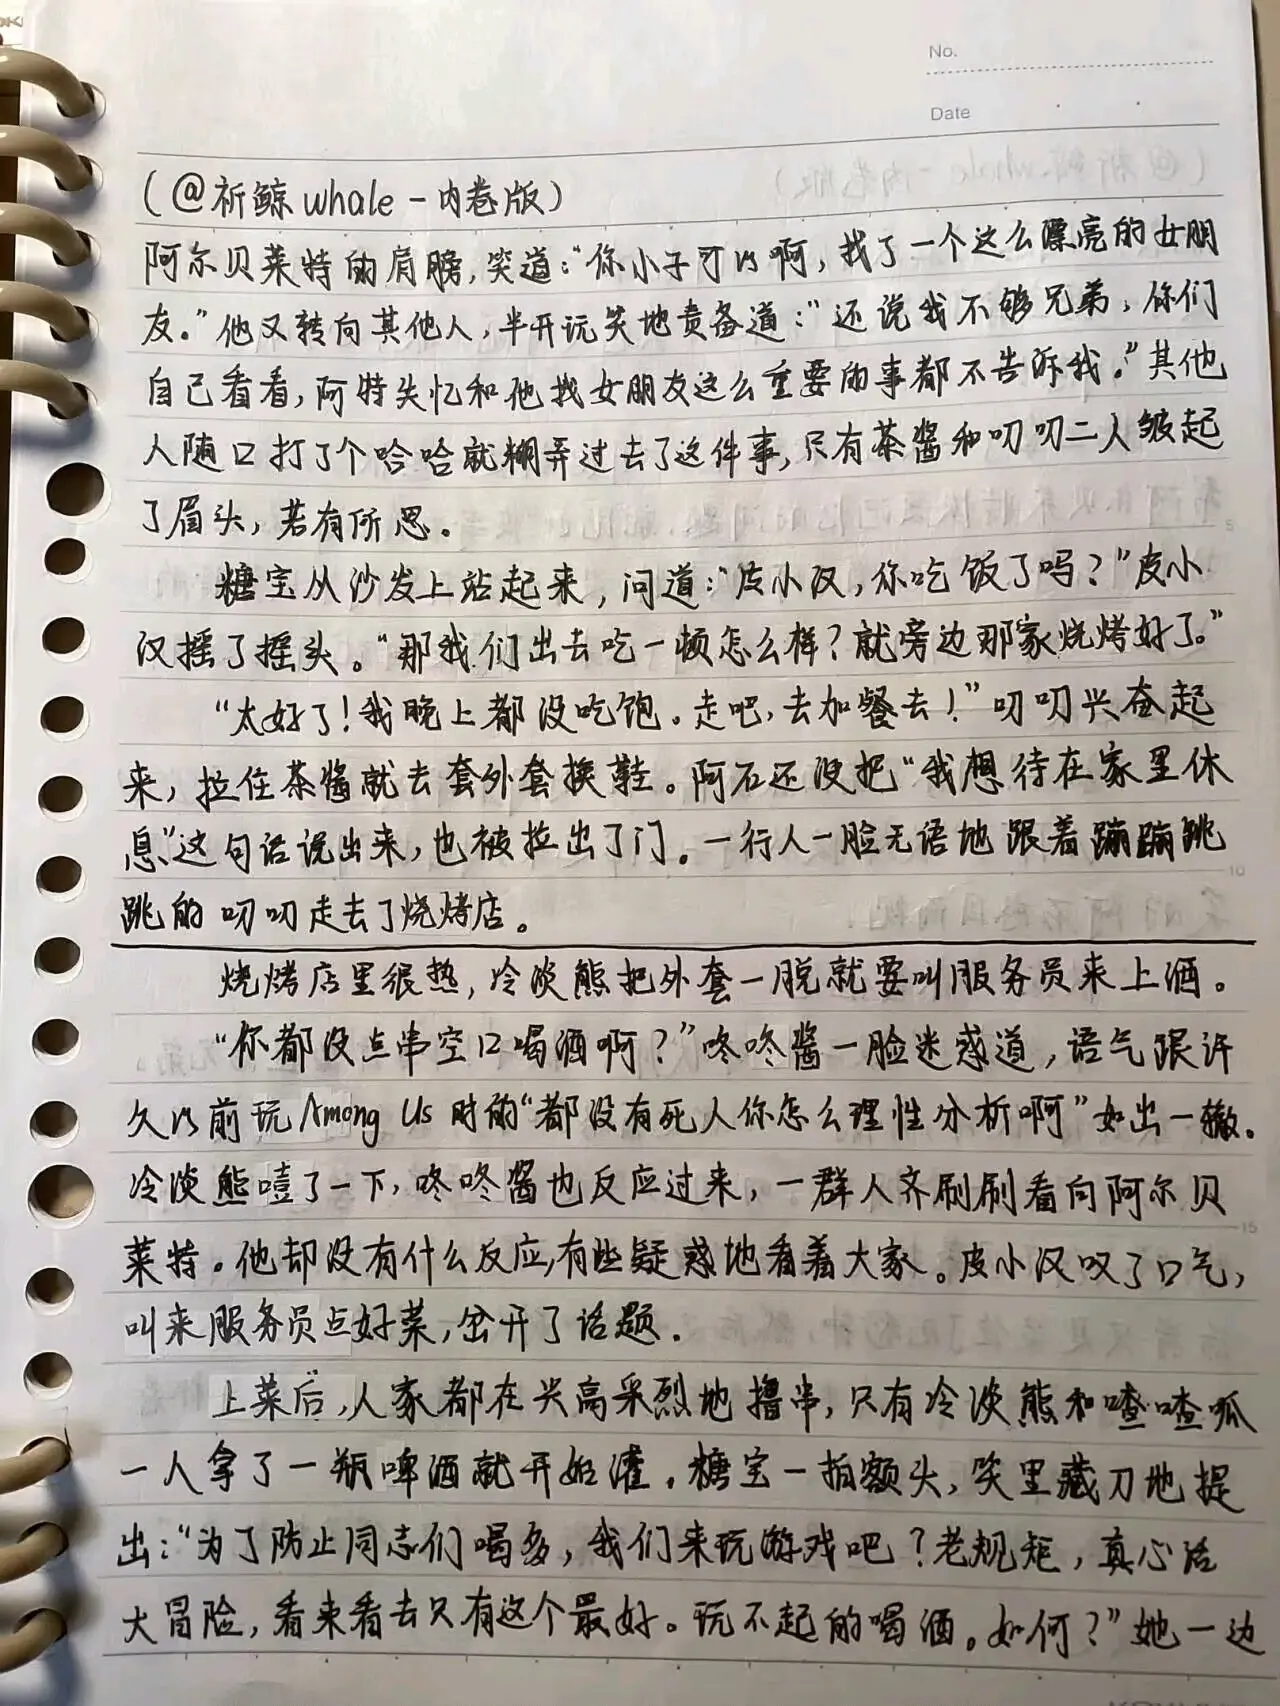 No.
Date
(@祈鲸whale-内卷版)
阿尔贝莱特的肩膀,笑道:“你小子可以啊,找了一个这么漂亮的女朋
友。”他又转向其他人,半开玩笑地责备道:“还说我不够兄弟,你们
自己看看,阿特失忆和他找女朋友这么重要的事都不告诉我。”其他
人随口打了个哈哈就糊弄过去了这件事,只有茶酱和叨叨二人皱起
了眉头,若有所思。
糖宝从沙发上站起来,问道:“皮小汉,你吃饭了吗?”皮小
汉摇了摇头。“那我们出去吃一顿怎么样?就旁边那家烧烤好了。”
“太好了!我晚上都没吃饱。走吧,去加餐去!”叨叨兴奋起
来,拉住茶酱就去套外套换鞋。阿石还没把“我想待在家里休
息”这句话说出来,也被拉出了门。一行人一脸无语地跟着蹦蹦跳
跳的叨叨走去了烧烤店。
烧烤店里很热,冷淡熊把外套一脱就要叫服务员来上酒。
“你都没点串空口喝酒啊?”咚咚酱一脸迷惑道,语气跟许
久以前玩Among Us时的“都没有死人你怎么理性分析啊”如出一辙。
冷淡熊噎了一下,咚咚酱也反应过来,一群人齐刷刷看向阿尔贝
莱特。他却没有什么反应,有些疑惑地看着大家。皮小汉叹了口气,
叫来服务员点好菜,岔开了话题。
上菜后,人家都在兴高采烈地撸串,只有冷淡熊和喳喳呱
一人拿了一瓶啤酒就开始灌。糖宝一拍额头,笑里藏刀地提
出:“为了防止同志们喝多,我们来玩游戏吧?老规矩,真心话
大冒险,看来看去只有这个最好。玩不起的喝酒。如何?”她一边